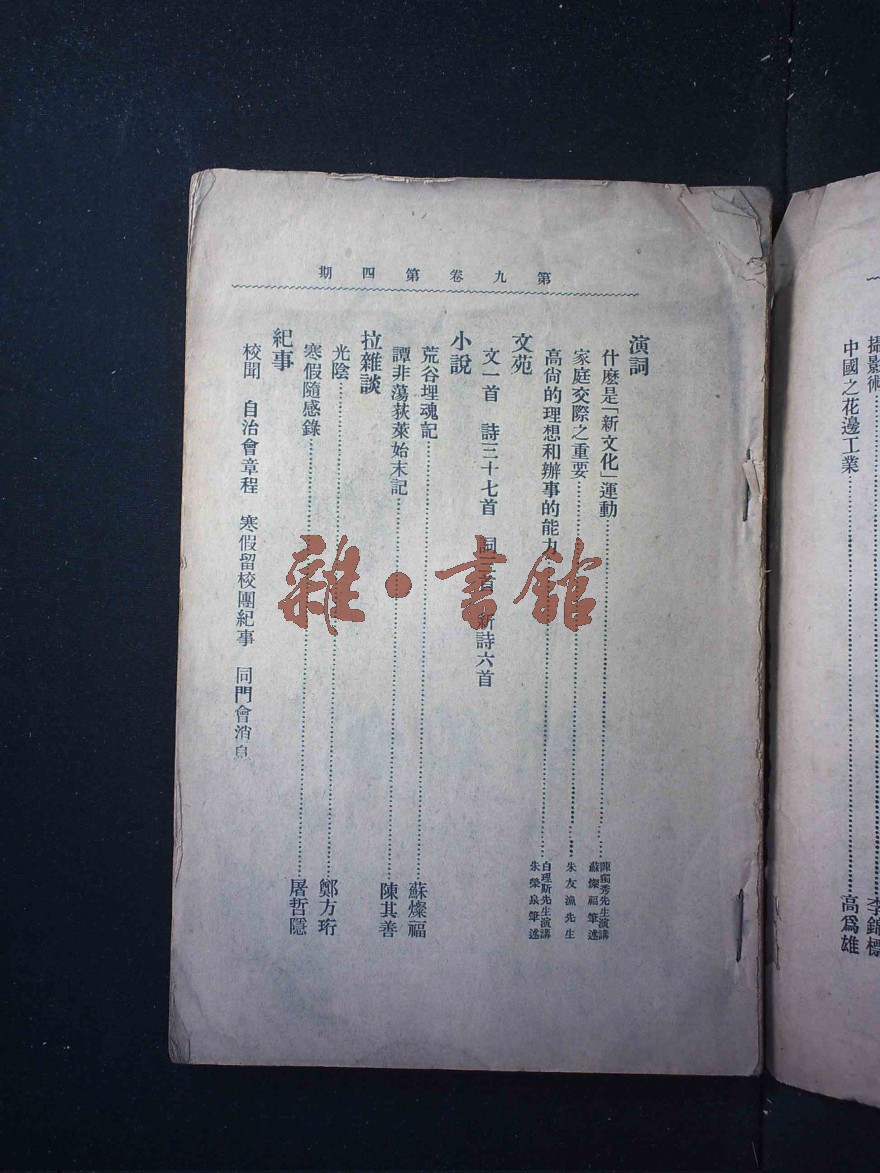 第九卷第四期
演詞
什麼是「新文化」運動 陳獨秀先生演講 蘇燦福筆述
家庭交際之重要 朱友漁先生
高尙的理想和辦事的能力 白理斯先生演講 朱榮泉筆述
文苑
文一首 詩三十七首 詞 首 新詩六首
小說
荒谷埋魂記 蘇燦福
譚非蕩荻萊始末記 陳其善
拉雜談
光陰 鄭方珩
寒假隨感錄 屠哲隱
紀事
校聞 自治會章程 寒假留校團紀事 同門會消息
攝影術 李錦標
中國之花邊工業 高爲雄
雜·書館